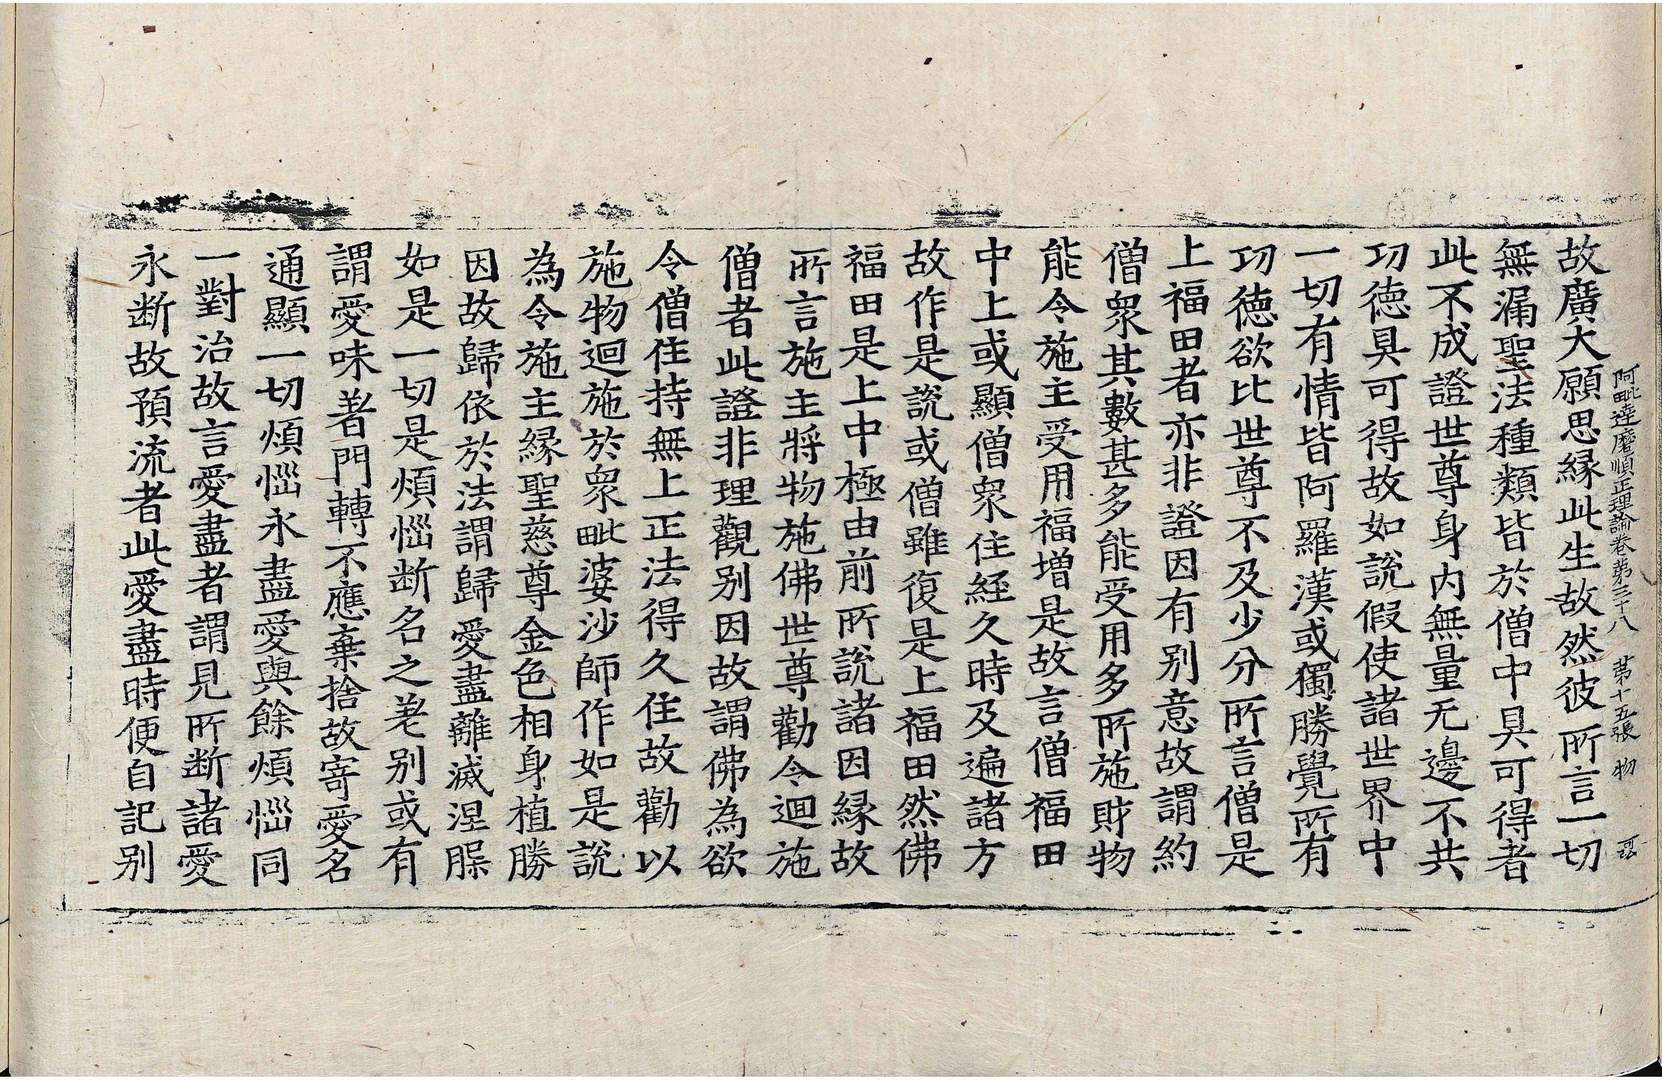 阿毗達磨順正理論卷第三十八 第十五張 物
故廣大願思緣此生故然彼所言一切
無漏聖法種類皆於僧中具可得者
此不成證世尊身內無量无邊不共
功德具可得故如說假使諸世界中
一切有情皆阿羅漢或獨勝覺所有
功德欲比世尊不及少分所言僧是
上福田者亦非證因有別意故謂約
僧眾其數甚多能受用多所施財物
能令施主受用福增是故言僧福田
中上或顯僧眾住經久時及遍諸方
故作是說或僧雖復是上福田然佛
福田是上中極由前所說諸因緣故
所言施主將物施佛世尊勸令迴施
僧者此證非理觀別因故謂佛為欲
令僧住持無上正法得久住故勸以
施物迴施於眾毗婆沙師作如是說
為令施主緣聖慈尊金色相身植勝
因故歸依於法謂歸愛盡離滅涅槃
如是一切是煩惱断名之差別或有
謂愛味著門轉不應棄捨故寄愛名
通顯一切煩惱永盡愛與餘煩惱同
一對治故言愛盡者謂見所断諸愛
永断故預流者此愛盡時便自記別